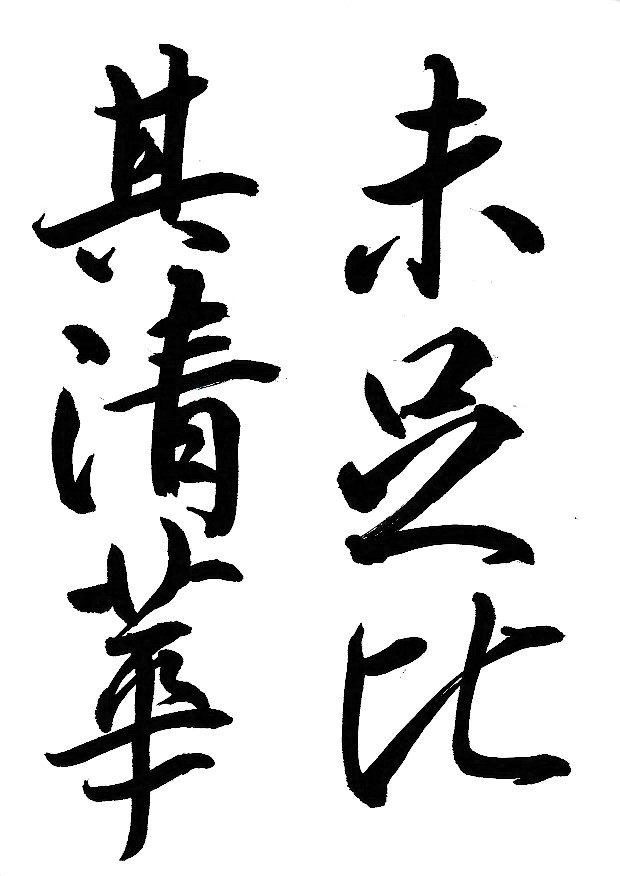 未足比
其清華